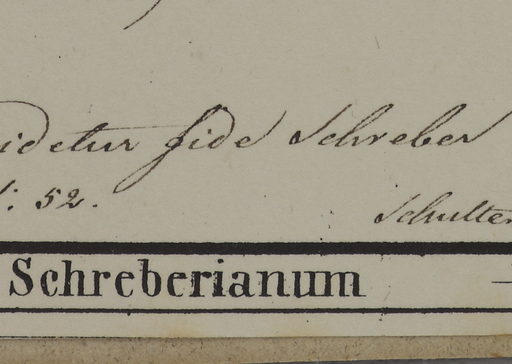 idetur fide Schreber
: 52.
Schulten
Schreberianum